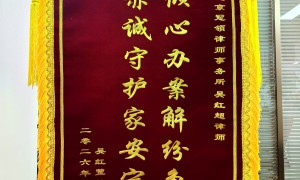 京冠领律师事务所 吴红超律师
倾心办案解纷争
赤诚守护家安宁
二〇二六年